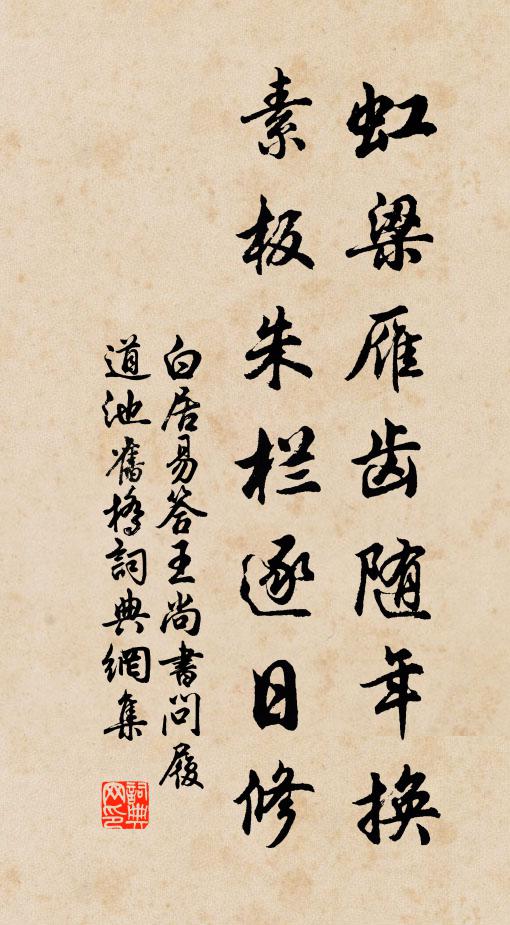 虹梁雁齿随年换
素板朱栏逐日修
白居易答王尚書问履
道池舊橋詞典網集
詞典
网印